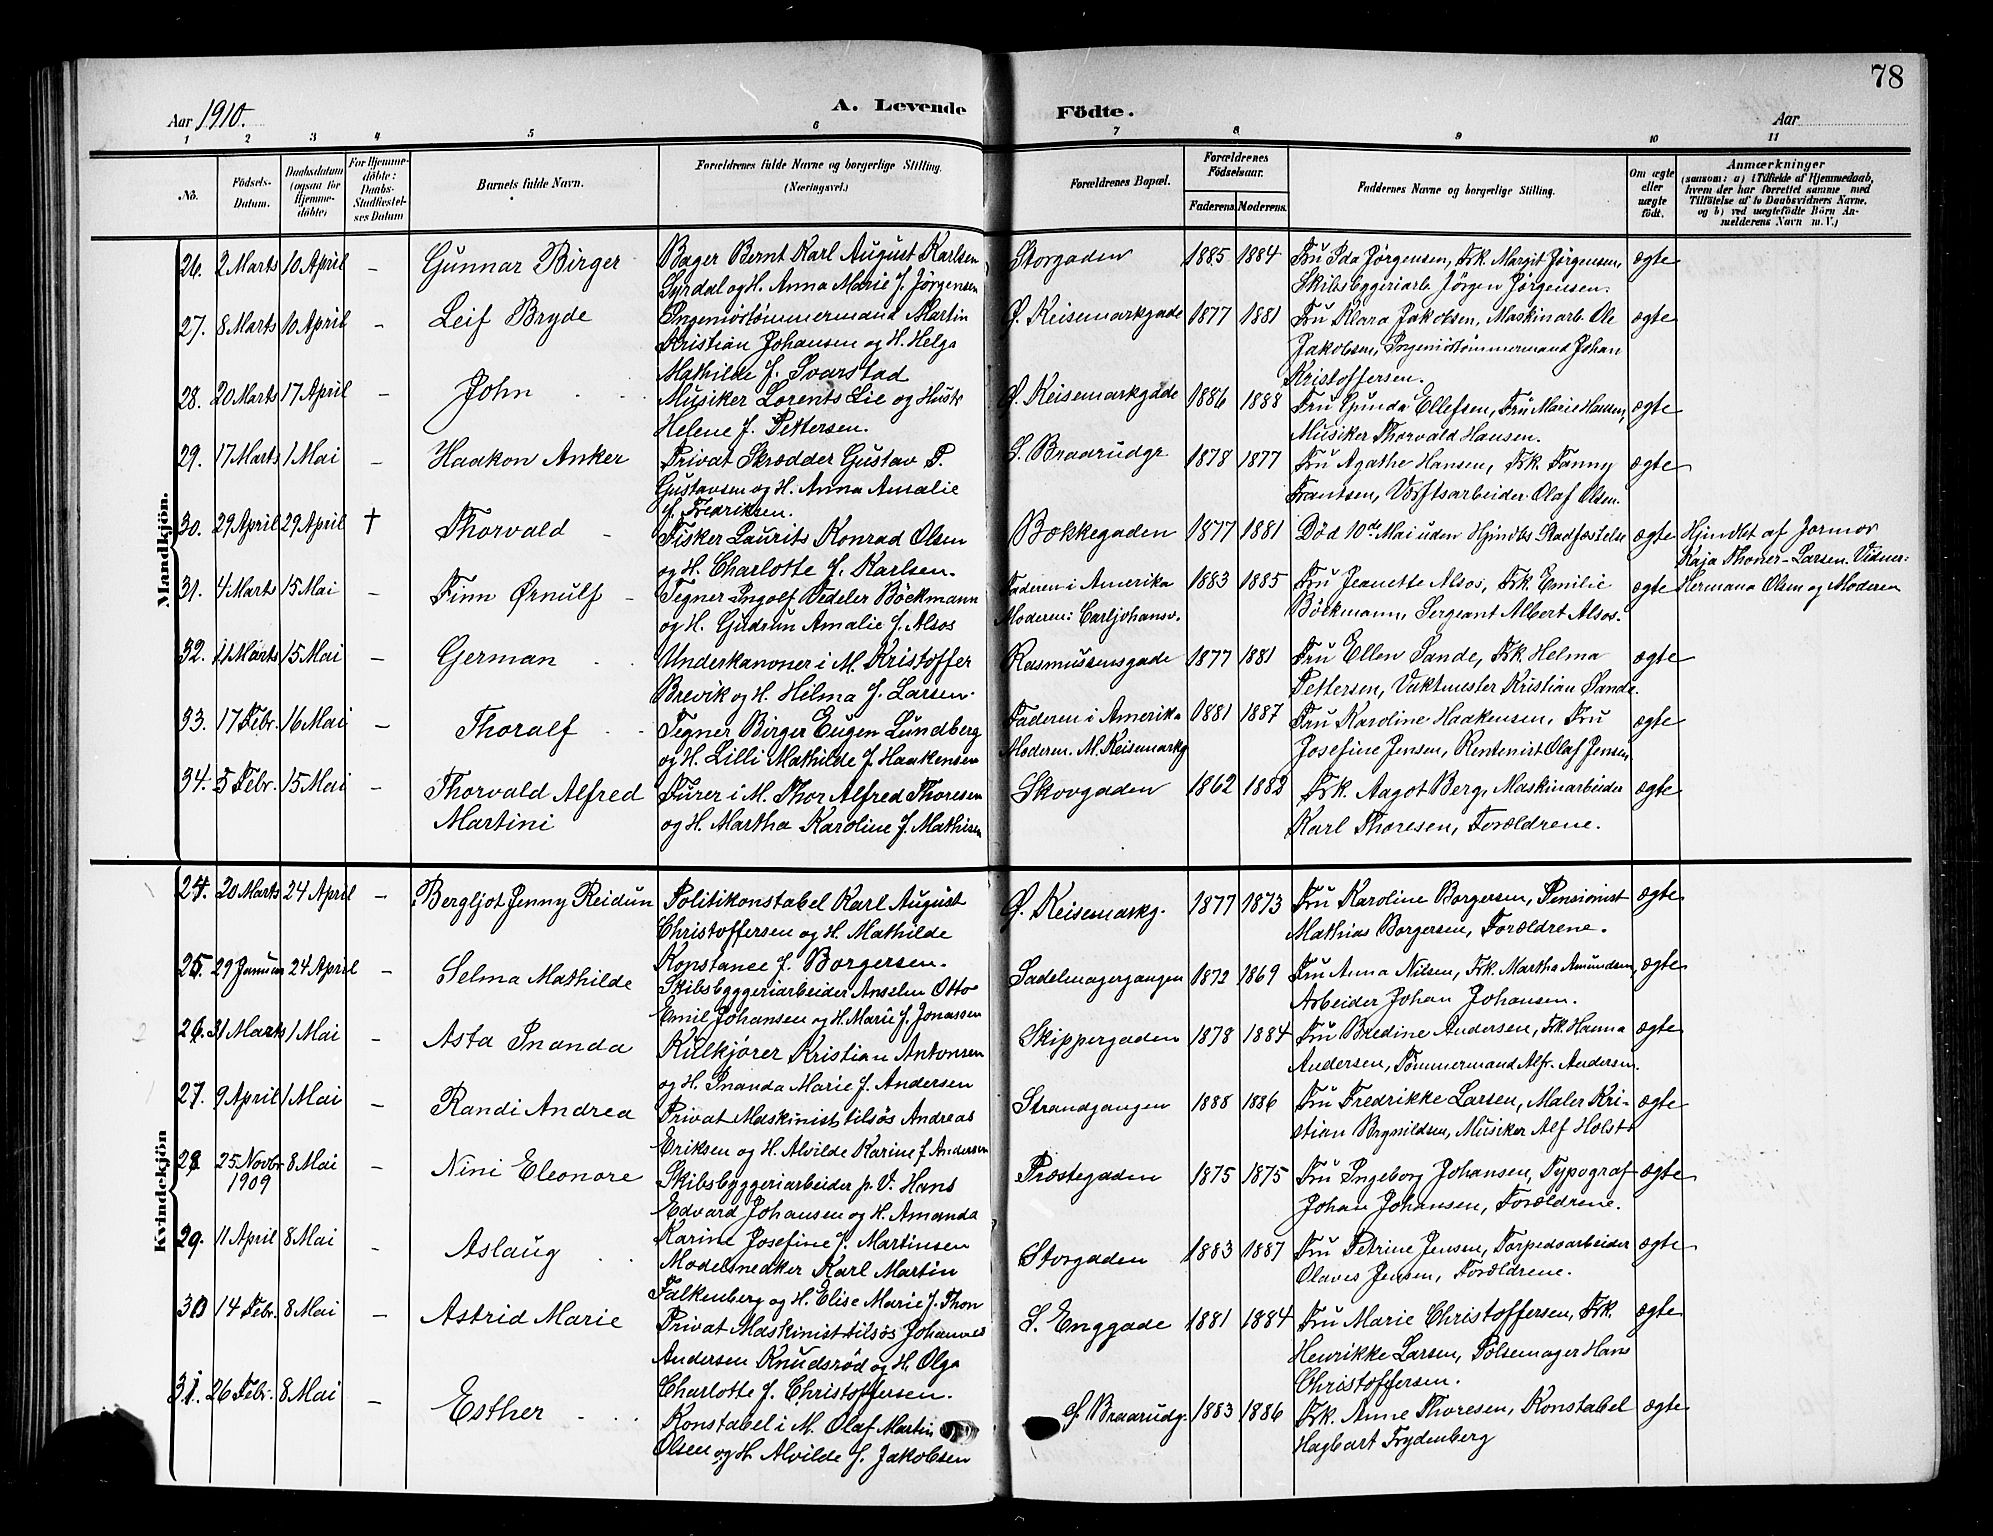 78
Aar 1910. A. Levende Födte. Aar
1 2 3 4 5 6 7 8 9 10 11
No. Födsels-Datum. Daabsdatum (ogsaa for Hjemmedöbte) For Hjemmedöbte: Daabs-Stadfæstelses Datum Barnets fulde Navn. Forældrenes fulde Navne og borgerlige Stilling. (Næringsvei.) Forældrenes Bopæl. Forældrenes Födselsaar. Faderens Moderens. Faddernes Navne og borgerlige Stilling. Om ægte eller uægte födt. Anmærkninger (saasom: a) i Tilfælde af Hjemmedaab, hvem der har forrettet samme, med Tilföielse af to Daabsvidners Navne, og b) ved uægtefödte Börn Anmelderens Navn m. V.)
Mandkjön.
26. 2 Marts 10 April – Gunnar Birger Bager Bernt Karl August Karlsen Storgaden 1885 1884 Fru Ida Jørgensen, Frk. Margit Jørgensen, ægte
Syrdal og H. Anna Marie f. Jørgensen Skibsbyggeriarb Jörgen Jörgensen.
27. 8 Marts 10 April – Leif Bryde Ingeniørtømmermand Martin Ø. Keisemarkgade 1877 1881 Fru Klara Jakobsen, Maskinarb. Ole ægte
Kristian Johansen og H. Helga Jakobsen, Ingeniørtømmermand Johan
Mathilde f. Svarstad Kristoffersen.
28. 20 Marts 17 April – John Musiker Lorents Lie og Hustr Ø. Keisemarkgade 1886 1888 Fru Gunda Ellefsen, Fru Marie Hansen, ægte
Helene f. Pettersen. Musiker Thorvald Hansen.
29. 17 Marts 1 Mai – Haakon Anker Privat Skrædder Gustav P. S. Braarudgt 1878 1877 Fru Agathe Hansen, Frk. Fanny ægte
Gustavsen og H. Anna Amalie Frantsen, Værftsarbeider Olaf Olsen.
f. Fredriksen.
30. 29 April 29 April † Thorvald Fisker Laurits Konrad Olsen Bækkegaden 1877 1881 Död 10de Mai uden Hjmdbs Stadfæstelse ægte Hjmdbt af Jormor
og H. Charlotte f. Karlsen. Kaja Thoner-Larsen. Vidner:
31. 4 Marts 15 Mai – Finn Ørnulf Tegner Ingolf Vedeler Böckmann Faderen i Amerika 1883 1885 Fru Jeanette Alsos, Frk. Emilie ægte Hermana Olsen og Moderen
og H. Gudrun Amalie f. Alsos Moderen: Carljohansv. Böckmann, Sergeant Albert Alsos.
32. 11 Marts 15 Mai – German Underkanoner i M. Kristoffer Rasmussensgade 1877 1881 Fru Ellen Sande, Frk. Helma ægte
Brevik og H. Hilma f. Larsen. Pettersen, Vaktmester Kristian Sande.
33. 17 Febr. 16 Mai – Thoralf Tegner Birger Eugen Lundberg Faderen i Amerika 1881 1887 Fru Karoline Haakensen, Fru ægte
og H. Lilli Mathilde f. Haakensen Moderen. M. Keisemarkg Josefine Jensen, Rentenist Olaf Jensen
34. 5 Febr. 15 Mai – Thorvald Alfred Furer i M. Thor Alfred Thoresen Skovgaden 1862 1882 Frk. Aagot Berg, Maskinarbeider ægte
Martini og H. Martha Karoline f. Mathisen Karl Thoresen, Forældrene.
Kvindekjön
24. 20 Marts 24 April – Bergljot Jenny Reidun Politikonstabel Karl August Ø. Keisemarkg. 1877 1873 Fru Karoline Borgersen, Pensionist ægte
Christoffersen og H. Mathilde Mathias Borgersen, Forældrene.
Konstanse f. Borgersen.
25. 29 Januar 24 April – Selma Mathilde Skibsbyggeriarbeider Anselm Otto Sadelmagergangen 1872 1869 Fru Anna Nilsen, Frk. Martha Amundsen, ægte
Emil Johansen og H. Marie f. Jonassen Arbeider Johan Johansen.
26. 31 Marts 1 Mai – Asta Inanda Kulkjører Kristian Antonsen Skippergaden 1878 1884 Fru Bredine Andersen, Frk. Hanna ægte
og H. Inanda Marie f. Andersen Andersen, Tømmermand Alfr. Andersen.
27. 9 April 1 Mai – Randi Andrea Privat Maskinist tilsøs Andreas Strandgangen 1888 1886 Fru Fredrikke Larsen, Maler Kri- ægte
Eriksen og H. Alvilde Karine f. Andersen stian Brynildsen, Musiker Alf Holst.
28. 25 Novbr 1909 8 Mai – Nini Eleonore Skibsbyggeriarbeider p. V. Hans Præstegaden 1875 1875 Fru Ingeborg Johansen, Typograf ægte
Edvard Johansen og H. Amanda Johan Johansen, Forældrene.
Karine Josefine f. Martinsen
29. 11 April 8 Mai – Aslaug Modelsnedker Karl Martin Storgaden 1883 1887 Fru Petrine Jensen, Torpedoarbeider ægte
Falkenberg og H. Elise Marie f. Thon Olaves Jensen, Forældrene.
30 14 Febr. 8 Mai – Astrid Marie Privat Maskinist tilsøs Johannes S. Enggade 1881 1884 Fru Marie Christoffersen, Frk. ægte
Andersen Knudsrød og H. Olga Henrikke Larsen, Pölsemager Hans
Charlotte f. Christoffersen. Christoffersen.
31. 26 Febr. 8 Mai – Esther Konstabel i M. Olaf Martin S. Braarudg. 1883 1886 Frk. Anne Thoresen, Konstabel ægte
Olsen og H. Alvilde f. Jakobsen Hagbart Frydenberg